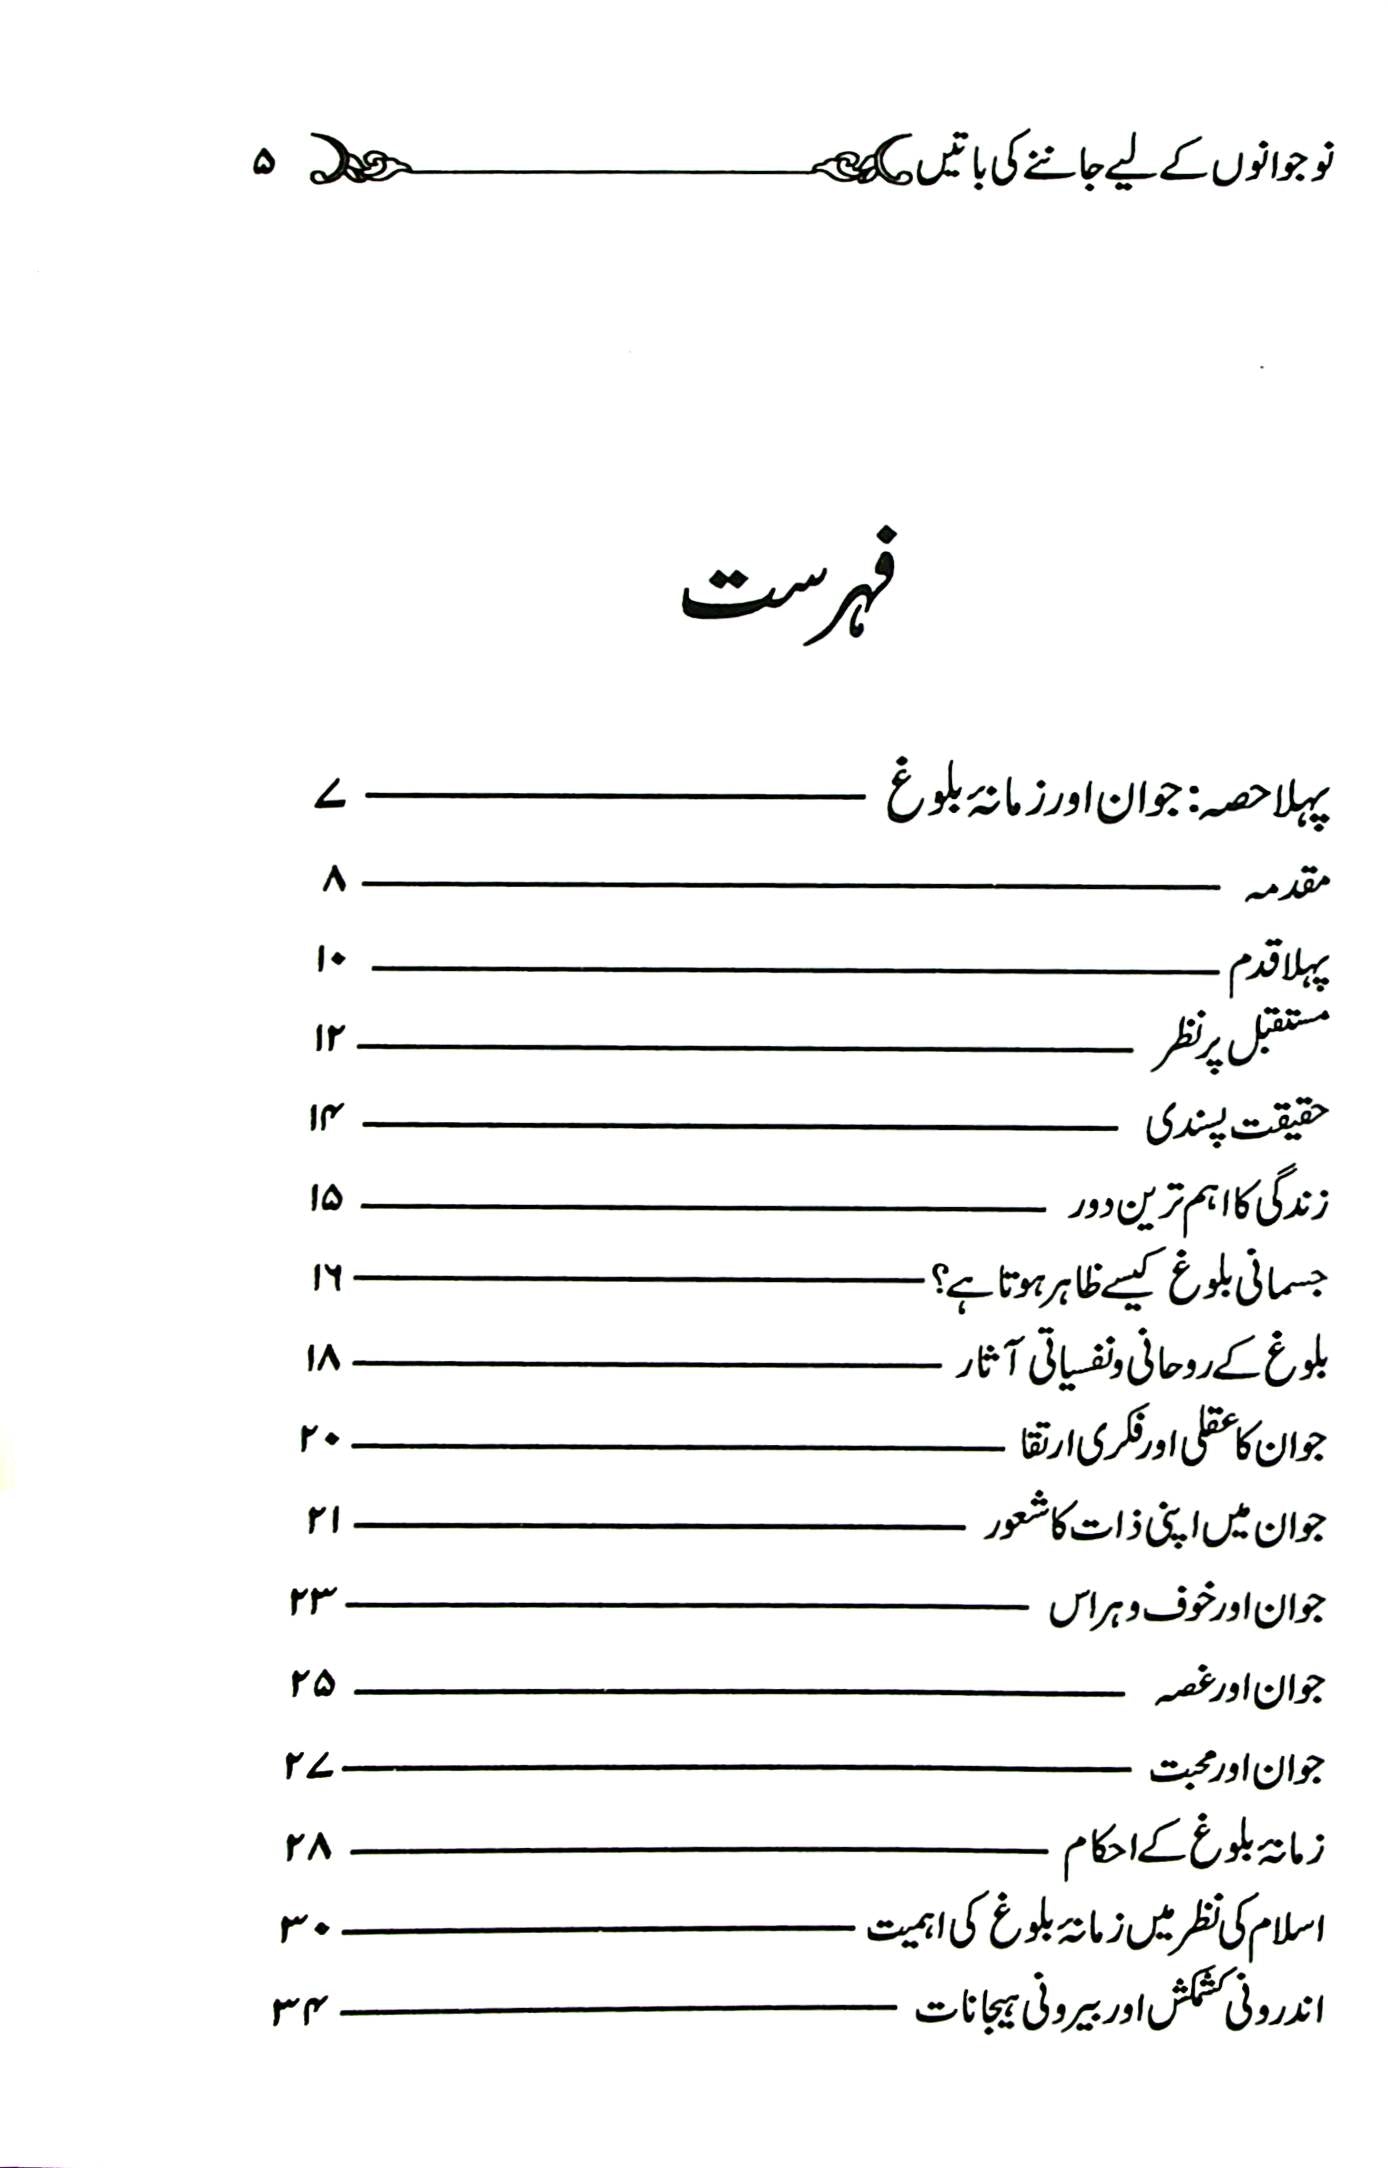 نوجوانوں کے لیے جاننے کی باتیں ۵
فہرست
پہلا حصہ: جوان اور زمانۂ بلوغ ۷
مقدمہ ۸
پہلا قدم ۱۰
مستقبل پر نظر ۱۲
حقیقت پسندی ۱۴
زندگی کا اہم ترین دور ۱۵
جسمانی بلوغ کیسے ظاہر ہوتا ہے؟ ۱۶
بلوغ کے روحانی و نفسیاتی آثار ۱۸
جوان کا عقلی اور فکری ارتقا ۲۰
جوان میں اپنی ذات کا شعور ۲۱
جوان اور خوف و ہراس ۲۳
جوان اور غصہ ۲۵
جوان اور محبت ۲۷
زمانۂ بلوغ کے احکام ۲۸
اسلام کی نظر میں زمانۂ بلوغ کی اہمیت ۳۰
اندرونی کشمکش اور بیرونی ہیجانات ۳۴